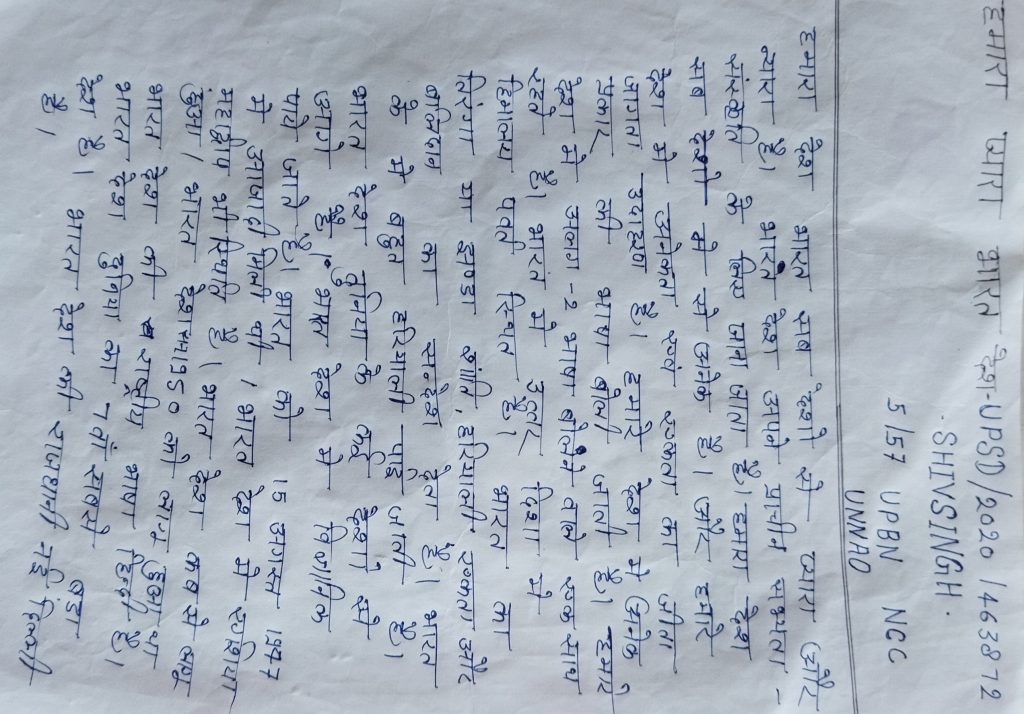 हमारा प्यारा भारत देश-UPSD/2020/463872
. SHIVSINGH .
5/57 UPBN NCC
UNNAO
हमारा देश भारत सब देशो से प्यारा और
न्यारा है। भारत देश अपने प्राचीन सभ्यता -
संस्कृति के लिए जाना जाता है। हमारा देश
सब देशो मे से अनेक है। और हमारे
देश मे अनेकता एवं एकता का जीता
जागता उदाहरण है। हमारे देश मे अनेक
प्रकार की भाषा बोली जाती है। हमारे
देश मे अलग-2 भाषा बोलने वाले एक साथ
रहते है। भारत मे उत्तर दिशा मे
हिमालय पर्वत स्थित है। भारत का
तिरंगा या झण्डा शांति, हरियाली, एकता और
बलिदान का सन्देश देता है। भारत
के मे बहुत हरियाली पाई जाती है।
भारत देश दुनिया के कई देशो से
आगे है। भारत देश मे
पाये जाते है। भारत को 15 अगस्त 1947
मे आजादी मिली थी। भारत देश मे एशिया
महाद्वीप भी स्थित है। भारत देश कब से
हुआ। भारत देश 1950 को लागू हुआ था
भारत देश की राष्ट्रीय भाषा हिन्दी है।
भारत देश दुनिया का 7 वॉ सबसे बडा
देश है। भारत देश की राजधानी नई दिल्ली
है।